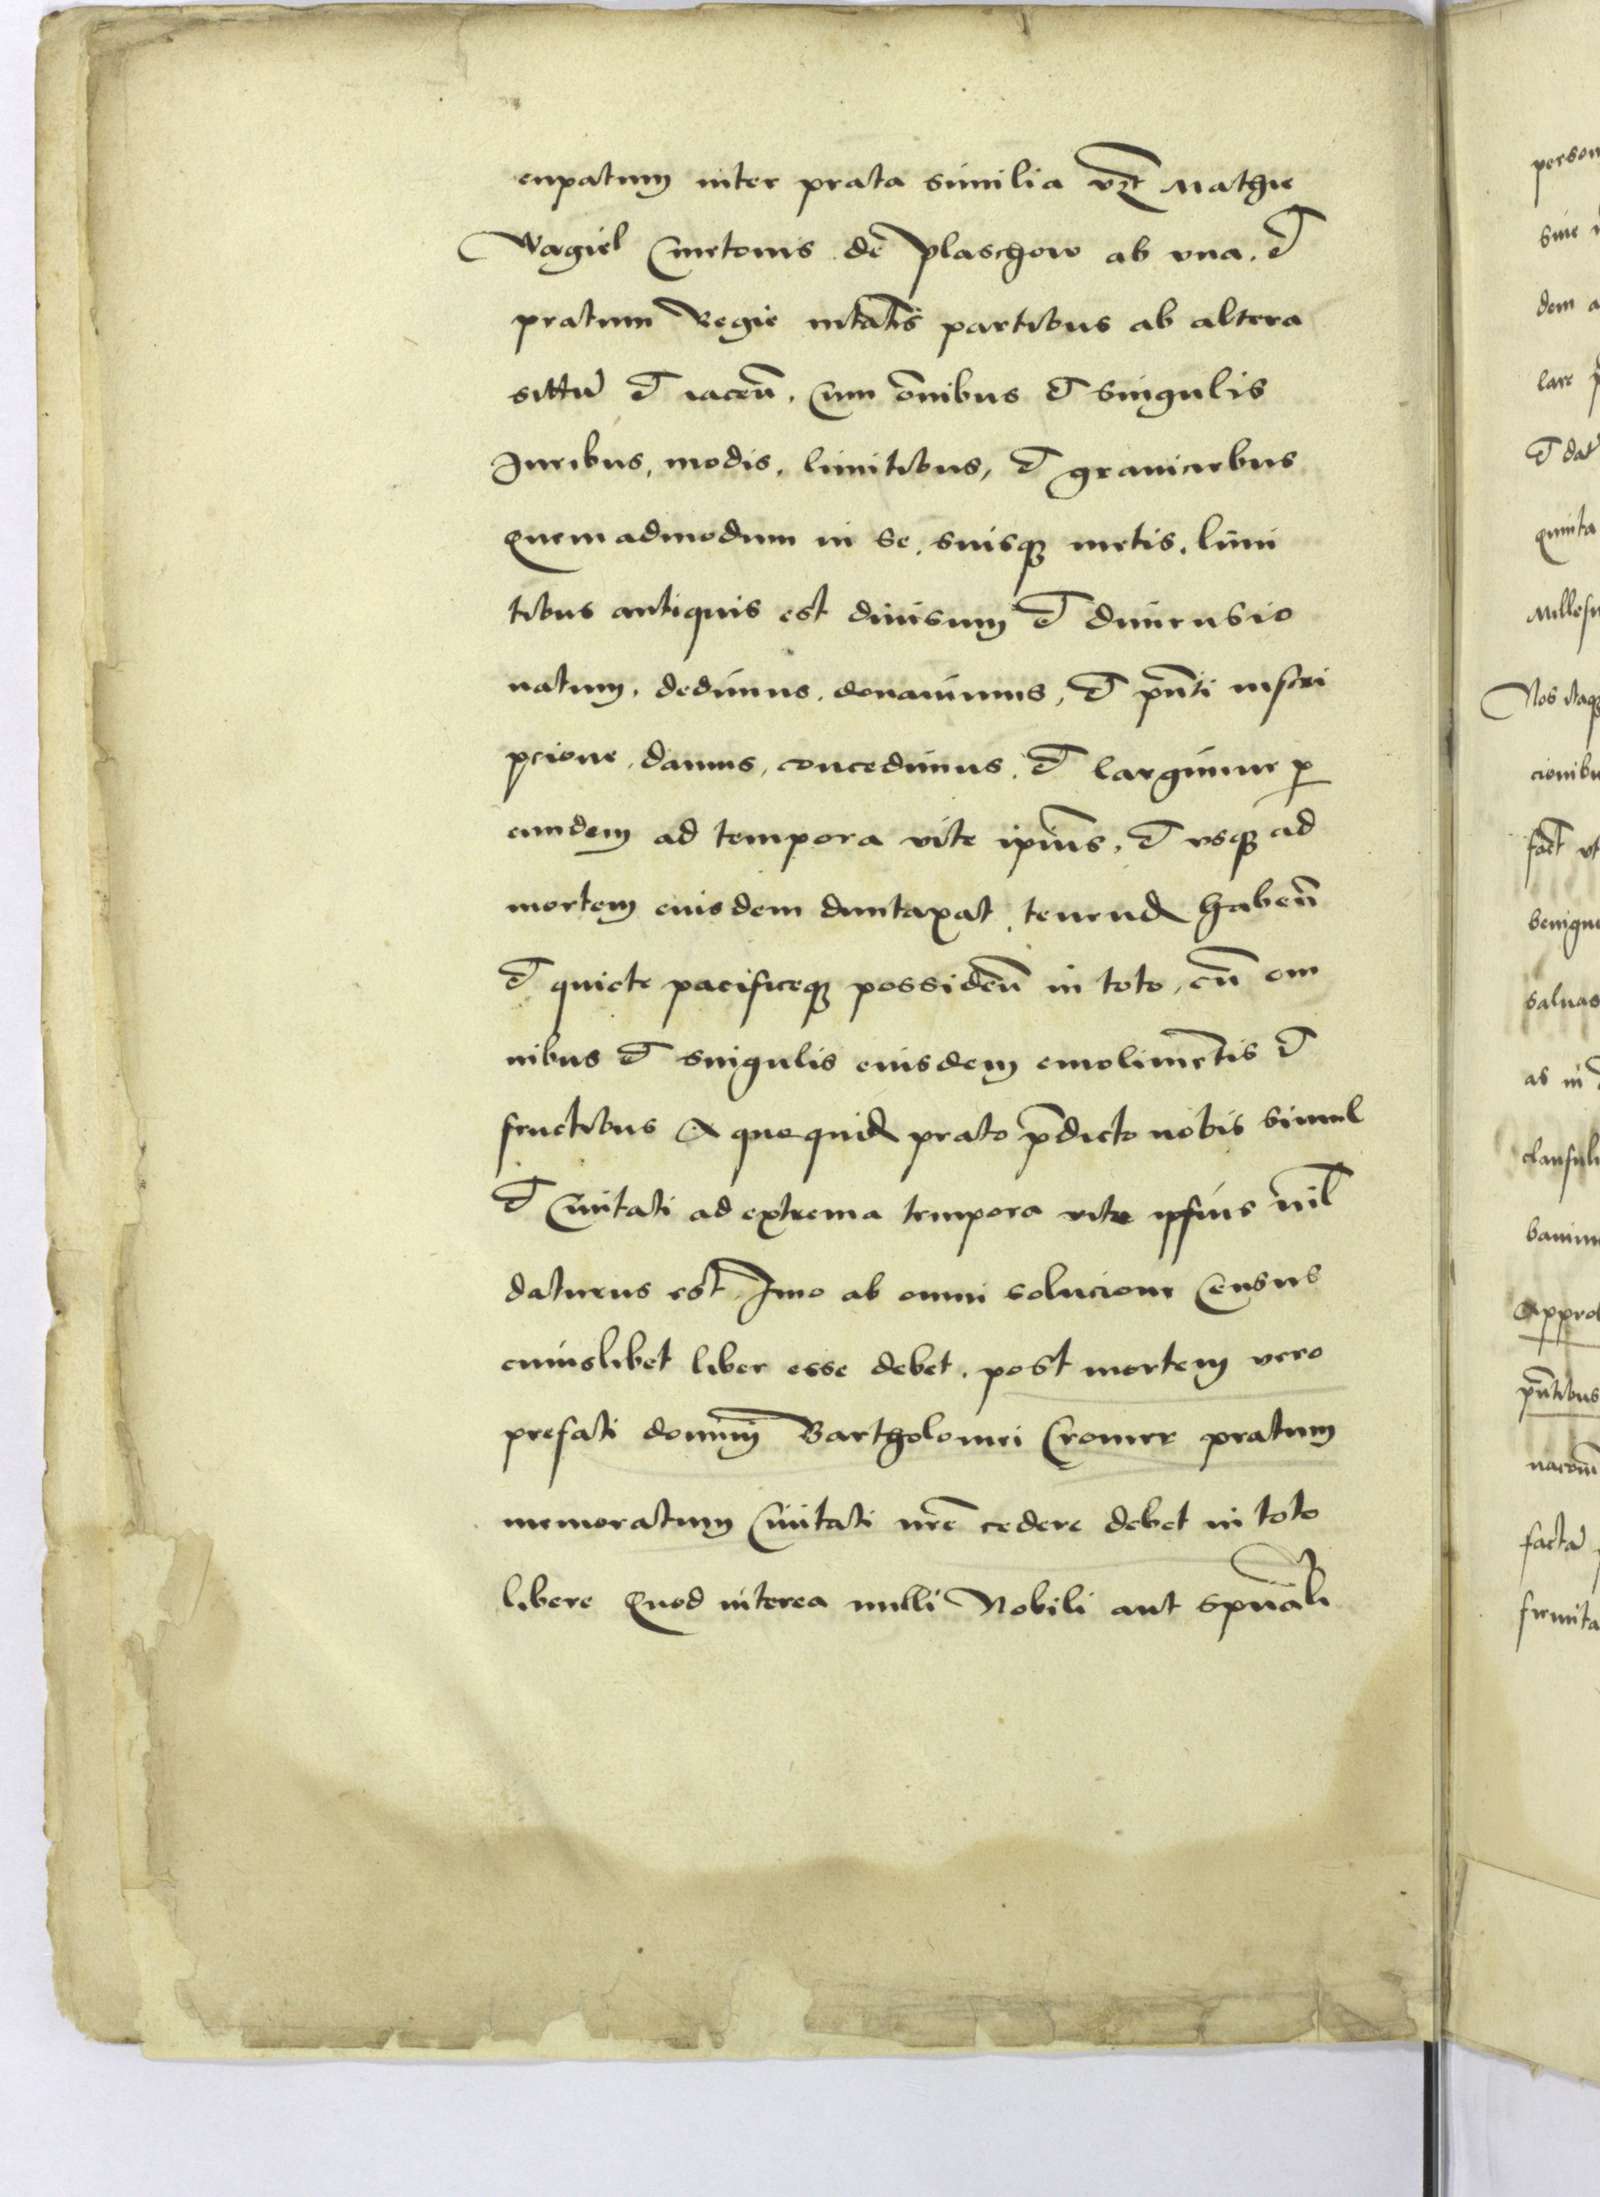 cupatum inter prata similia vzt Mathie
Wagiel Cmetonis de Plaschow ab vna. et
pratum Regie mtatis partibus ab altera
situ et iacen. Cum omibus et singulis
Juribus, modis, limitibus, et graniciebus
Quemadmodum in se, suisq metis, limi
tibus antiquis est diuisum et dimensio
natum, dedimus, donauimus, et pnti inscri
pcione, damus, concedimus, et largimur p
eundem ad tempora vite ipius, et vsq ad
mortem eiusdem duntaxat, tenend haben
et quiete pacificeq possiden in toto, cu om
nibus et singulis eiusdem emolimentis et
fructibus A quoquid prato pdicto nobis simul
et Ciuitati ad extrema tempora vite ipsius nil
daturus est, Imo ab omni solucione Census
cuiuslibet liber esse debet, post mortem vero
prefati domini Bartholomei Cromer pratum
memoratum Ciuitati nre cedere debet in toto
libere Quod interea nulli Nobili aut spuali
person
siue
dem a
lare
et dat
quinta
Millesi
Nos itaq
cionibu
fact vt
benigne
saluas
as in
clausuli
bauim
Appro
pntibus
facta
firmita